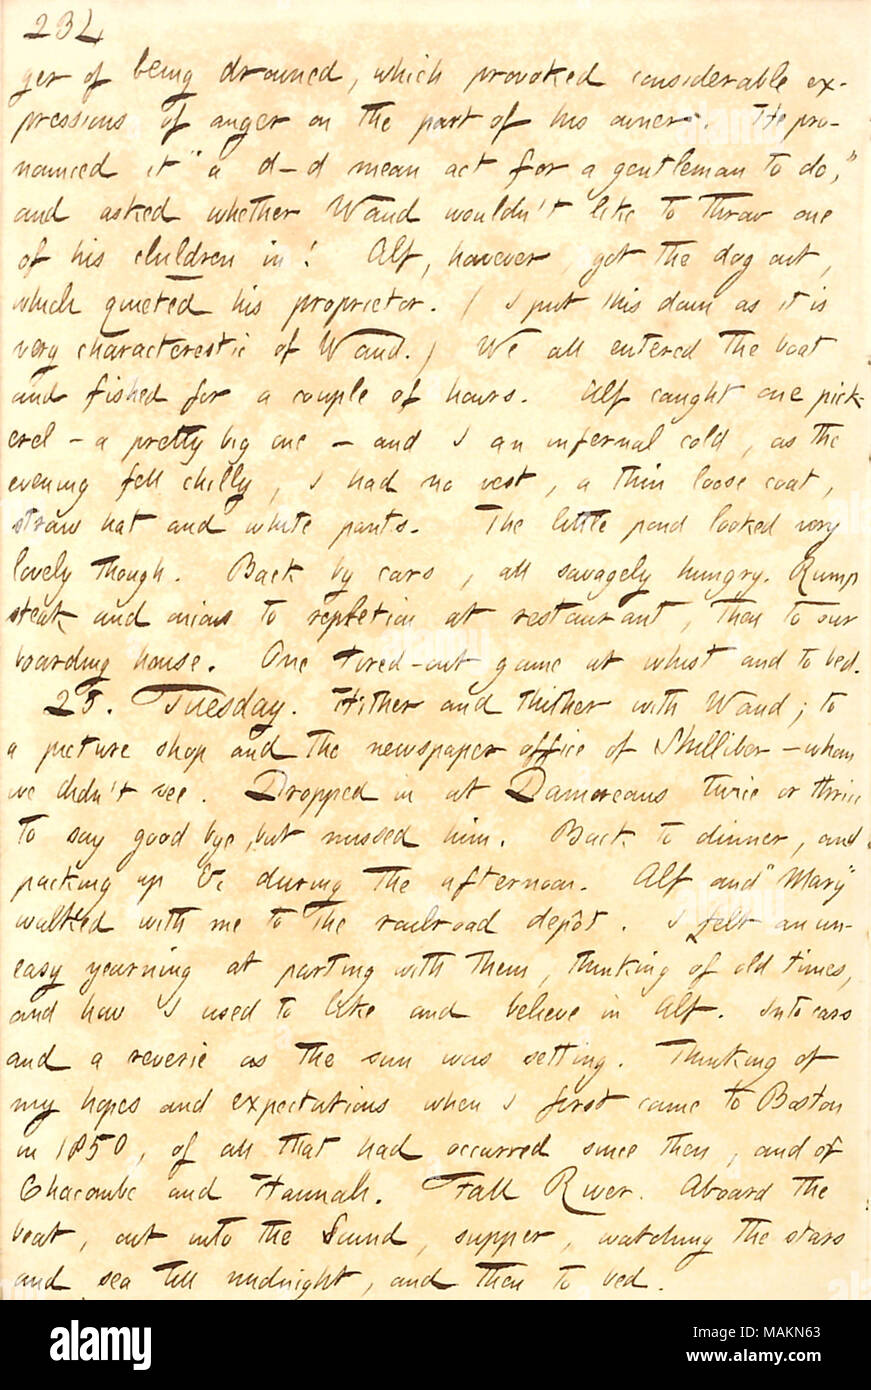 234
ger of being drowned, which provoked considerable ex-
pressions of anger on the part of his owner. He pro-
nounced it "a d—d mean act for a gentleman to do,"
and asked whether Waud wouldn't like to throw one
of his children in! Alf, however, got the dog out,
which quieted his proprietor. (I put this down as it is
very characterestic of Waud.) We all entered the boat
and fished for a couple of hours. Alf caught one pick-
erel – a pretty big one – and I an infernal cold, as the
evening fell chilly, I had no vest, a thin loose coat,
straw hat and white pants. The little pond looked very
lovely though. Back by cars, all savagely hungry. Rump
steak and onions to repletion at restaurant, then to our
boarding house. One tired-out game at whist and to bed.
25. Tuesday. Hither and thither with Waud; to
a picture shop and the newspaper office of Shilliber – whom
we didn't see. Dropped in at Damoreaus twice or thrice
to say good bye, but missed him. Back to dinner, and
packing up &c during the afternoon. Alf and "Mary"
walked with me to the railroad depôt. I felt an un-
easy yearning at parting with them, thinking of old times,
and how I used to like and believe in Alf. Into cars
and a reverie as the sun was setting. Thinking of
my hopes and expectations when I first came to Boston
in 1850, of all that had occurred since then, and of
Chacombe and Hannah. Fall River. Aboard the
boat, out into the Sound, supper, watching the stars
and sea till midnight, and then to bed.
alamy
Image ID: MAKN63
www.alamy.com